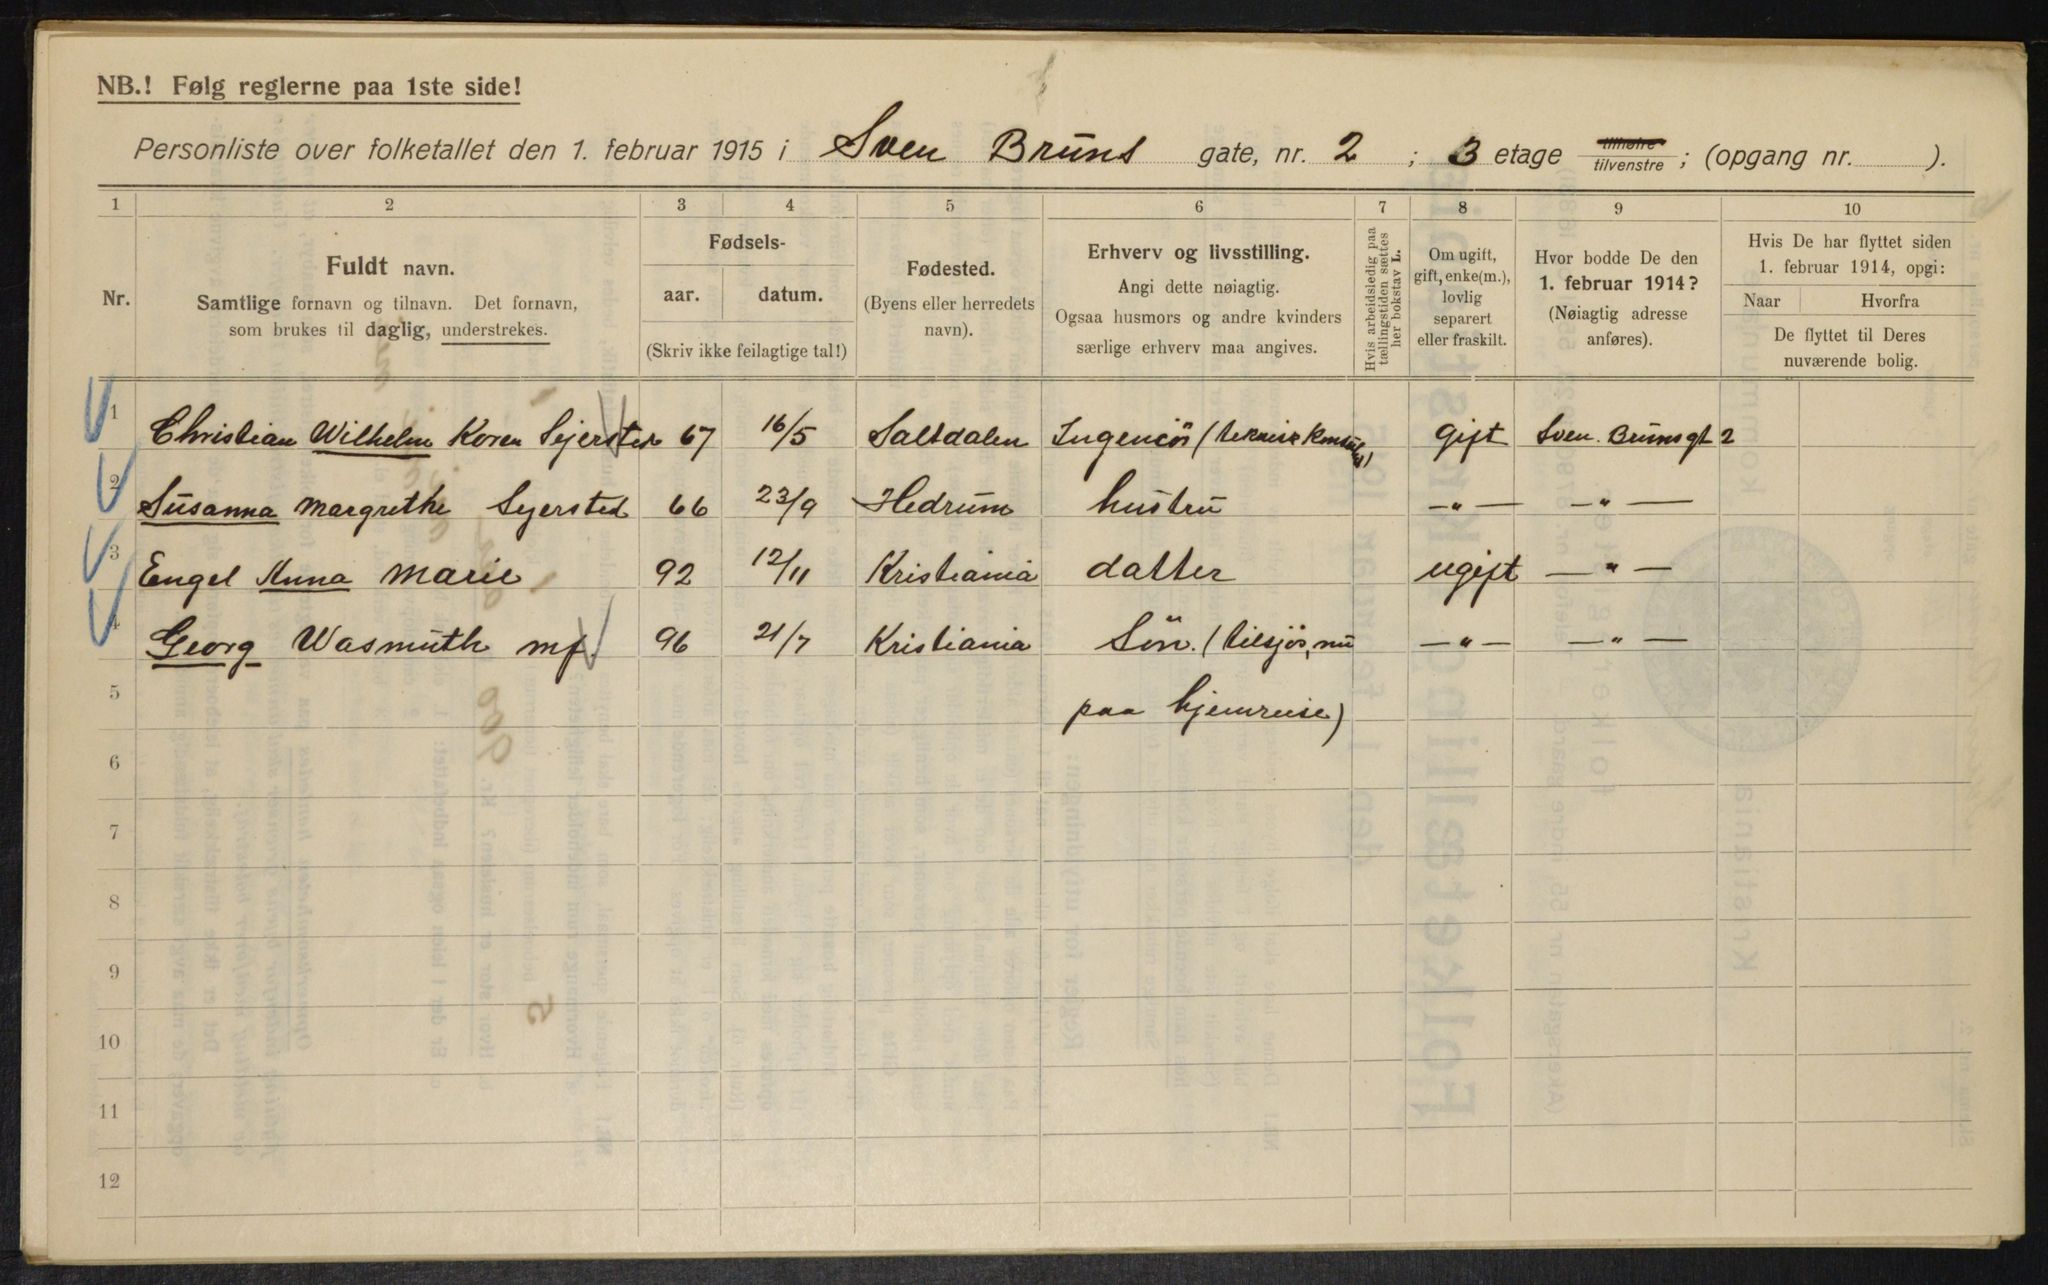 NB.! Følg reglerne paa 1ste side!
Personliste over folketallet den 1. februar 1915 i Sven Bruns gate, nr. 2 ; 3 etage tilhøire tilvenstre ; (opgang nr. ).
1 2 3 4 5 6 7 8 9 10
Nr.
Fuldt navn.
Samtlige fornavn og tilnavn. Det fornavn,
som brukes til daglig, understrekes.
Fødsels-
aar. datum.
(Skriv ikke feilagtige tal!)
Fødested.
(Byens eller herredets
navn).
Erhverv og livsstilling.
Angi dette nøiagtig.
Ogsaa husmors og andre kvinders
særlige erhverv maa angives.
Hvis arbeidsledig paa
tællingstiden sættes
her bokstav L.
Om ugift,
gift, enke(m.),
lovlig
separert
eller fraskilt.
Hvor bodde De den
1. februar 1914?
(Nøiagtig adresse
anføres).
Hvis De har flyttet siden
1. februar 1914, opgi:
Naar Hvorfra
De flyttet til Deres
nuværende bolig.
1 Christian Wilhelm Koren Sejersted 67 16/5 Saltdalen Ingeniör (teknisk Konsulent) gift Sven Brunsgt 2
2 Susanna Margrethe Sejersted 66 23/9 Hedrum hustru — " — — " —
3 Engel Anna Marie 92 12/11 Kristiania datter ugift — " —
4 Georg Wasmuth 96 21/7 Kristiania Sön. (tilsjös, nu — " — — " —
5 paa hjemreise)
6
7
8
9
10
11
12